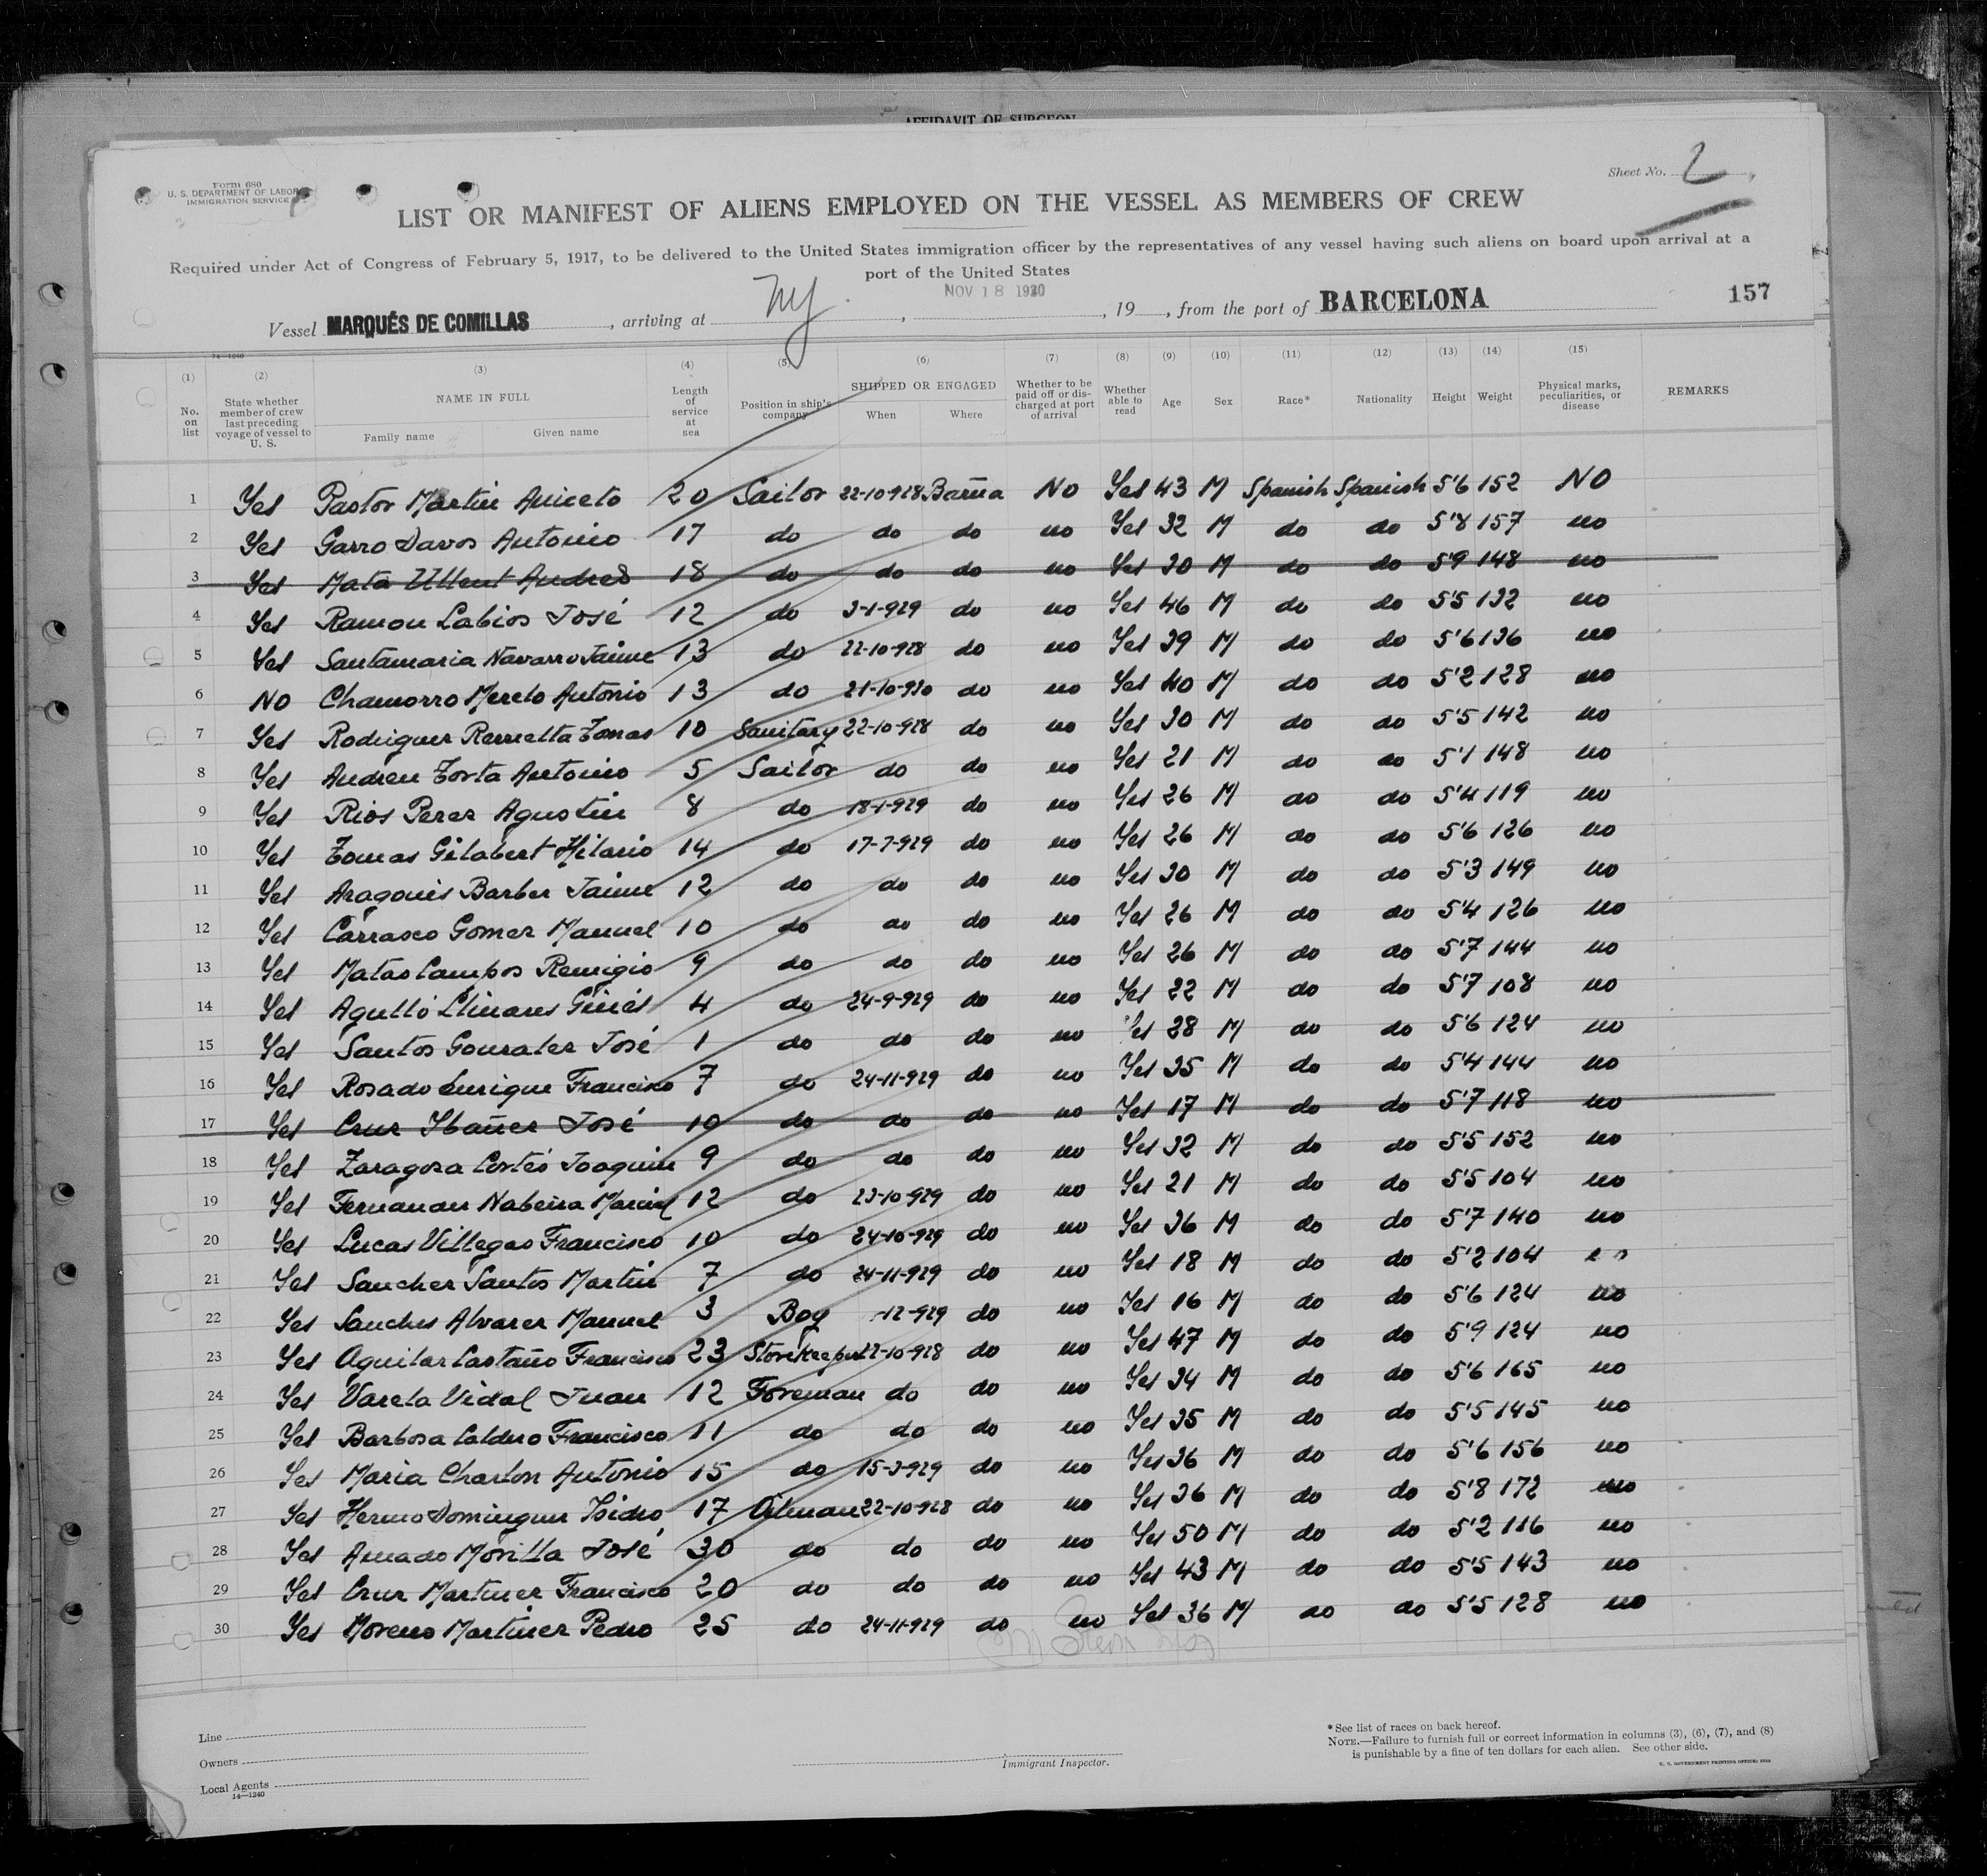 AFFIDAVIT OF SURGEON
Form 680
U. S. DEPARTMENT OF LABOR
IMMIGRATION SERVICE
Sheet No. 2
LIST OR MANIFEST OF ALIENS EMPLOYED ON THE VESSEL AS MEMBERS OF CREW
Required under Act of Congress of February 5, 1917, to be delivered to the United States immigration officer by the representatives of any vessel having such aliens on board upon arrival at a
port of the United States
Vessel MARQUÉS DE COMILLAS, arriving at NY, NOV 18 1930, 19, from the port of BARCELONA 157
(1) (2) (3) (4) (5) (6) (7) (8) (9) (10) (11) (12) (13) (14) (15)
No. on list State whether member of crew last preceding voyage of vessel to U. S. NAME IN FULL Family name Given name Length of service at sea Position in ship's company SHIPPED OR ENGAGED When Where Whether to be paid off or discharged at port of arrival Whether able to read Age Sex Race* Nationality Height Weight Physical marks, peculiarities, or disease REMARKS
1 Yes Pastor Martin Aniceto 20 Sailor 22-10-928 Barna No Yes 43 M Spanish Spanish 5'6 152 NO
2 Yes Garro Davos Antonio 17 do do do no Yes 32 M do do 5'8 157 no
3 Yes Mata Ullent Andres 18 do do do no Yes 30 M do do 5'9 148 no
4 Yes Ramon Labios José 12 do 3-1-929 do no Yes 46 M do do 5'5 132 no
5 Yes Santamaria Navarro Jaime 13 do 22-10-928 do no Yes 39 M do do 5'6 136 no
6 NO Chamorro Merelo Antonio 13 do 21-10-930 do no Yes 40 M do do 5'2 128 no
7 Yes Rodriguez Tomas 10 Sanitary 22-10-928 do no Yes 30 M do do 5'5 142 no
8 Yes Andreu Torta Antonio 5 Sailor do do no Yes 21 M do do 5'1 148 no
9 Yes Rios Perez Agustin 8 do 18-1-929 do no Yes 26 M do do 5'4 119 no
10 Yes Tomas Gilabert Hilario 14 do 17-7-929 do no Yes 26 M do do 5'6 126 no
11 Yes Aragonés Barber Jaime 12 do do do no Yes 30 M do do 5'3 149 no
12 Yes Carrasco Gomez Manuel 10 do do do no Yes 26 M do do 5'4 126 no
13 Yes Matas Campos Remigio 9 do do do no Yes 26 M do do 5'7 144 no
14 Yes Agulló Llinares Ginés 4 do 24-9-929 do no Yes 22 M do do 5'7 108 no
15 Yes Santos Gonzalez José 1 do do do no Yes 28 M do do 5'6 124 no
16 Yes Rosado Enrique Francisco 7 do 24-11-929 do no Yes 35 M do do 5'4 144 no
17 Yes Cruz Ibañez José 10 do do do no Yes 17 M do do 5'7 118 no
18 Yes Zaragoza Cortés Joaquin 9 do do do no Yes 32 M do do 5'5 152 no
19 Yes Fernandez Nabeira Marcial 12 do 23-10-929 do no Yes 21 M do do 5'5 104 no
20 Yes Lucas Villegas Francisco 10 do 24-10-929 do no Yes 36 M do do 5'7 140 no
21 Yes Sanchez Santos Martin 7 do 24-11-929 do no Yes 18 M do do 5'2 104 no
22 Yes Sanches Alvarez Manuel 3 Boy -12-929 do no Yes 16 M do do 5'6 124 no
23 Yes Aguilar Castaño Francisco 23 Storekeeper 22-10-928 do no Yes 47 M do do 5'9 124 no
24 Yes Varela Vidal Juan 12 Foreman do do no Yes 34 M do do 5'6 165 no
25 Yes Barbosa Caldero Francisco 11 do do do no Yes 35 M do do 5'5 145 no
26 Yes Maria Charlon Antonio 15 do 15-3-929 do no Yes 36 M do do 5'6 156 no
27 Yes Hermo Dominguez Isidro 17 Oilman 22-10-928 do no Yes 36 M do do 5'8 172 no
28 Yes Amado Morilla José 30 do do do no Yes 50 M do do 5'2 116 no
29 Yes Cruz Martinez Francisco 20 do do do no Yes 43 M do do 5'5 143 no
30 Yes Moreno Martinez Pedro 25 do 24-11-929 do no Yes 36 M do do 5'5 128 no
Line
Owners
Local Agents
14—1240
Immigrant Inspector.
* See list of races on back hereof.
NOTE.—Failure to furnish full or correct information in columns (3), (6), (7), and (8)
is punishable by a fine of ten dollars for each alien. See other side.
U. S. GOVERNMENT PRINTING OFFICE